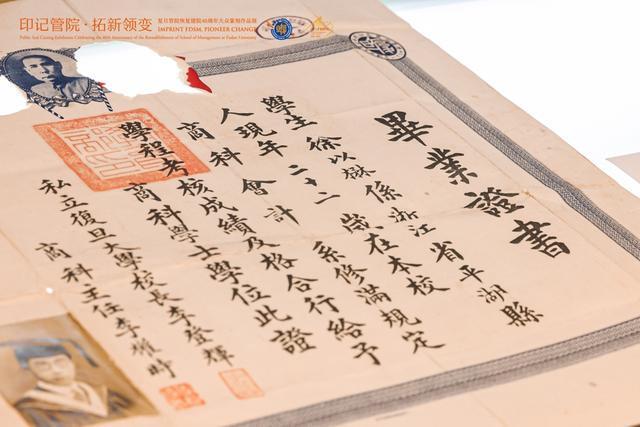 印记管院·拓新领变
复旦管院恢复建院40周年大众篆刻作品展
IMPRINT FDSM, PIONEER CHANGE
Public Seal Carving Exhibition Celebrating the 40th Anniversary of the Reestablishment of School of Management at Fudan University
畢業證書
學生徐以係浙江省平湖縣
人現年二十二歲在本校
商科會計系修滿規定
學程考核成績及格合行給予
商科學士學位此證
私立復旦大學校長李登輝
商科主任李權時